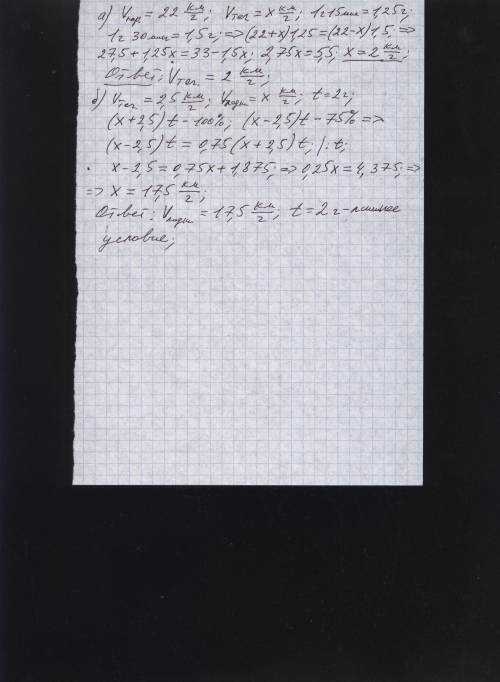 а) Vпар = 22 км/г; Vтеч = x км/г; 1г 15мин = 1,25г;
1г 30мин = 1,5г; => (22+x)1,25 = (22-x)1,5; =>
27,5 + 1,25x = 33 - 1,5x; 2,75x = 5,5; x = 2 км/г;
Ответ: Vтеч = 2 км/г;
б) Vтеч = 2,5 км/г; Vлодки = x км/г; t = 2г;
(x+2,5)t - 100%; (x-2,5)t - 75% =>
(x-2,5)t = 0,75(x+2,5)t; |:t;
x - 2,5 = 0,75x + 1,875; => 0,25x = 4,375; =>
=> x = 17,5 км/г;
Ответ: Vлодки = 17,5 км/г; t = 2г - лишнее
условие;